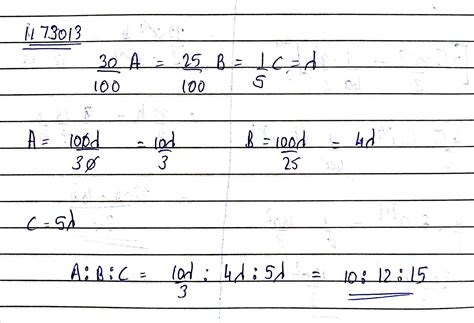 1173013
30/100 A = 25/100 B = 1/5 C = λ
A = 100λ/30 = 10λ/3 B = 100λ/25 = 4λ
C = 5λ
A:B:C = 10λ/3 : 4λ : 5λ = 10:12:15